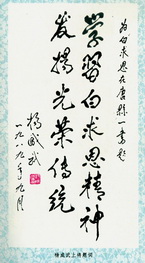 为白求恩在唐县一书题
学习白求恩精神
发扬光荣传统
杨成武
一九八九年九月
杨成武上将题词